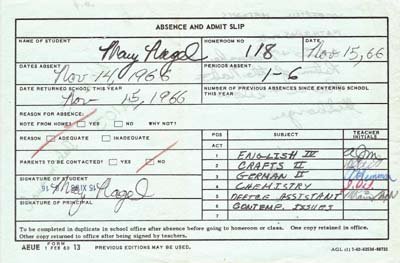 ABSENCE AND ADMIT SLIP
NAME OF STUDENT Mary Nagel HOMEROOM NO 118 DATE Nov 15, 66
DATES ABSENT Nov 14 1966 PERIODS ABSENT 1-6
DATE RETURNED SCHOOL THIS YEAR Nov 15, 1966 NUMBER OF PREVIOUS ABSENCES SINCE ENTERING SCHOOL THIS YEAR
REASON FOR ABSENCE:
NOTE FROM HOME? YES NO WHY NOT?
REASON ADEQUATE INADEQUATE
PARENTS TO BE CONTACTED? YES NO
SIGNATURE OF STUDENT
Mary Nagel
SIGNATURE OF PRINCIPAL
POS SUBJECT TEACHER INITIALS
ACT
1 ENGLISH IV
2 CRAFTS II
3 GERMAN II
4 CHEMISTRY
5 OFFICE ASSISTANT
6 CONTEMP. ISSUES
7
To be completed in duplicate in school office after absence before going to homeroom or class. One copy retained in office.
Other copy returned to office after being signed by teachers.
AEUE FORM 1 FEB 63 13 PREVIOUS EDITIONS MAY BE USED.